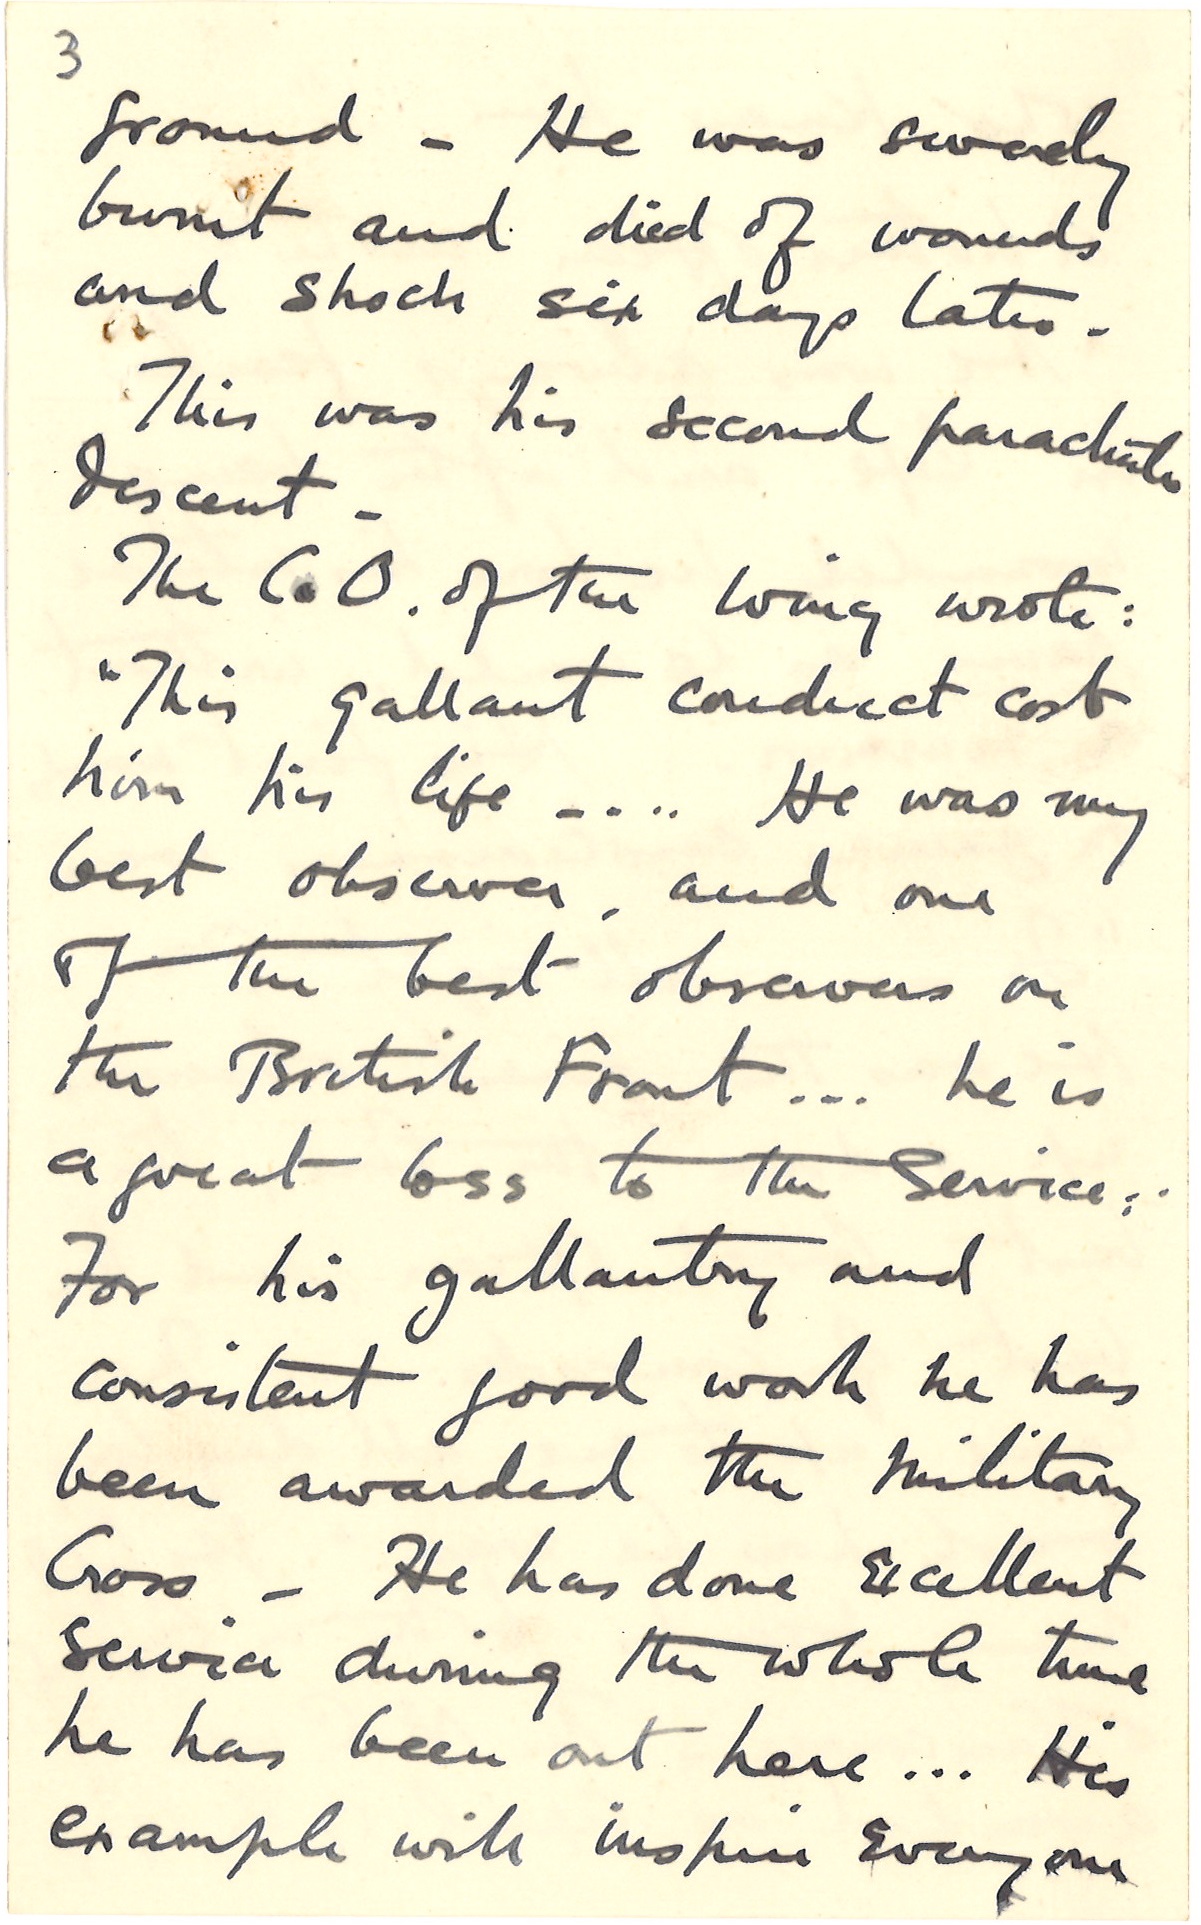 3
ground - He was severely
burnt and died of wounds
and shock six days later -
This was his second parachute
descent -
The C.O. of the Wing wrote:
"This gallant conduct cost
him his life - . . . He was my
best observer, and one
of the best observers on
the British Front ... he is
a great loss to the Service ..
For his gallantry and
consistent good work he has
been awarded the Military
Cross - He has done Excellent
Service during the whole time
he has been out here ... His
example will inspire Everyone